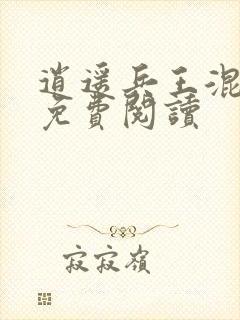 逍遥兵王混
免費閱讀
寂寂嶺